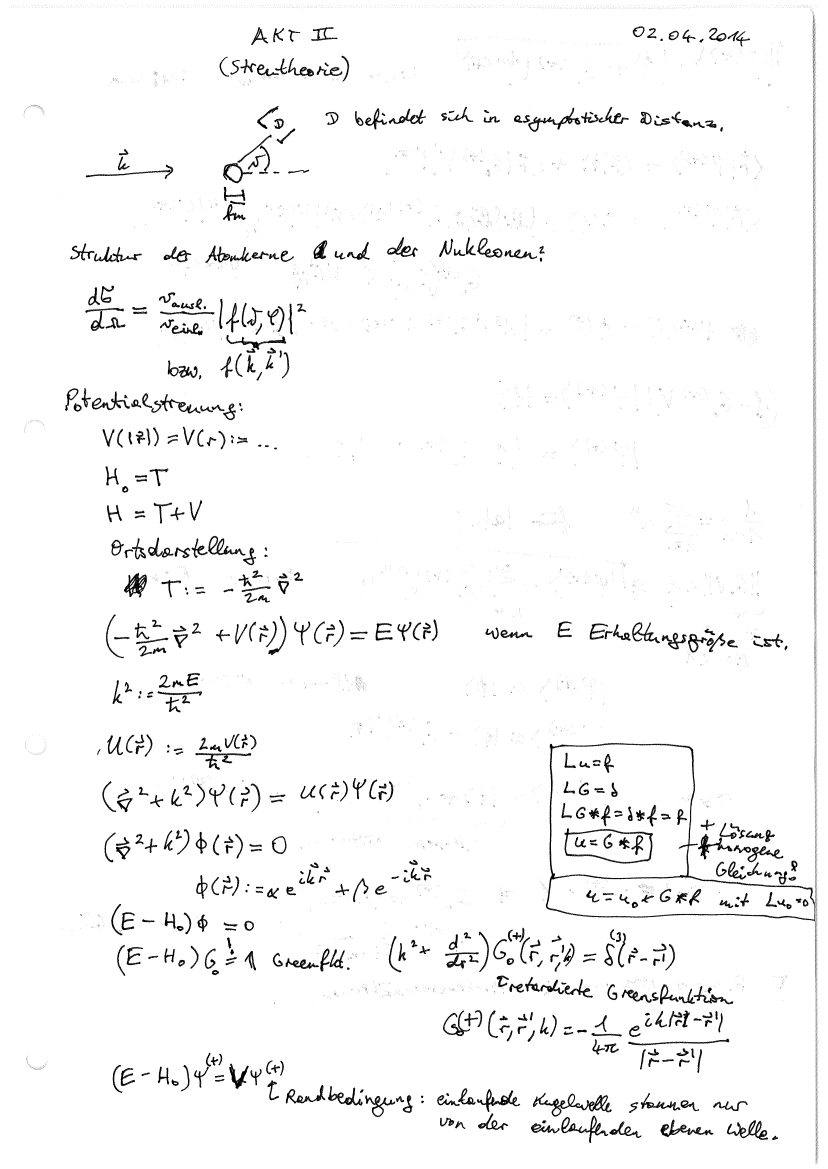 AKT II
02.04.2014
(Streutheorie)
D befindet sich in asymptotischer Distanz.
D
k⃗
ϑ
fm
Struktur der Atomkerne und der Nukleonen?
dσ/dΩ = v_ausl./v_einl. |f(ϑ,φ)|²
bzw. f(k⃗,k⃗')
Potentialstreuung:
V(|r⃗|) = V(r) := ...
H₀ = T
H = T+V
Ortsdarstellung:
T := -ħ²/2m ∇⃗²
(-ħ²/2m ∇⃗² + V(r⃗)) Ψ(r⃗) = EΨ(r⃗) wenn E Erhaltungsgröße ist.
k² := 2mE/ħ²
U(r⃗) := 2mV(r⃗)/ħ²
(∇⃗²+k²)Ψ(r⃗) = U(r⃗)Ψ(r⃗)
(∇⃗²+k²)ϕ(r⃗) = 0
ϕ(r⃗) := α e^{ik⃗r⃗} + β e^{-ik⃗r⃗}
Lu=f
LG=δ
LG*f=δ*f=f
u=G*f
+ Lösung
homogene
Gleichung!
u=u₀+G*f mit Lu₀=0
(E-H₀)ϕ = 0
(E-H₀)G₀ =! 1 Greenfkt.
(k²+ d²/dr²)G₀^(+)(r⃗,r⃗',k) = δ^(3)(r⃗-r⃗')
retardierte Greensfunktion
G₀^(+)(r⃗,r⃗',k) = -1/4π e^{ik|r⃗-r⃗'|}/|r⃗-r⃗'|
(E-H₀)Ψ^(+) = VΨ^(+)
Randbedingung: einlaufende Kugelwelle stammen nur
von der einlaufenden ebenen Welle.